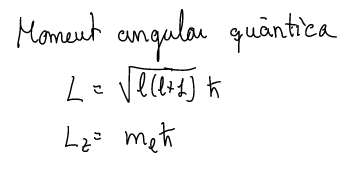 Moment angular quàntica
L = √l(l+1) ħ
L_z = m_l ħ